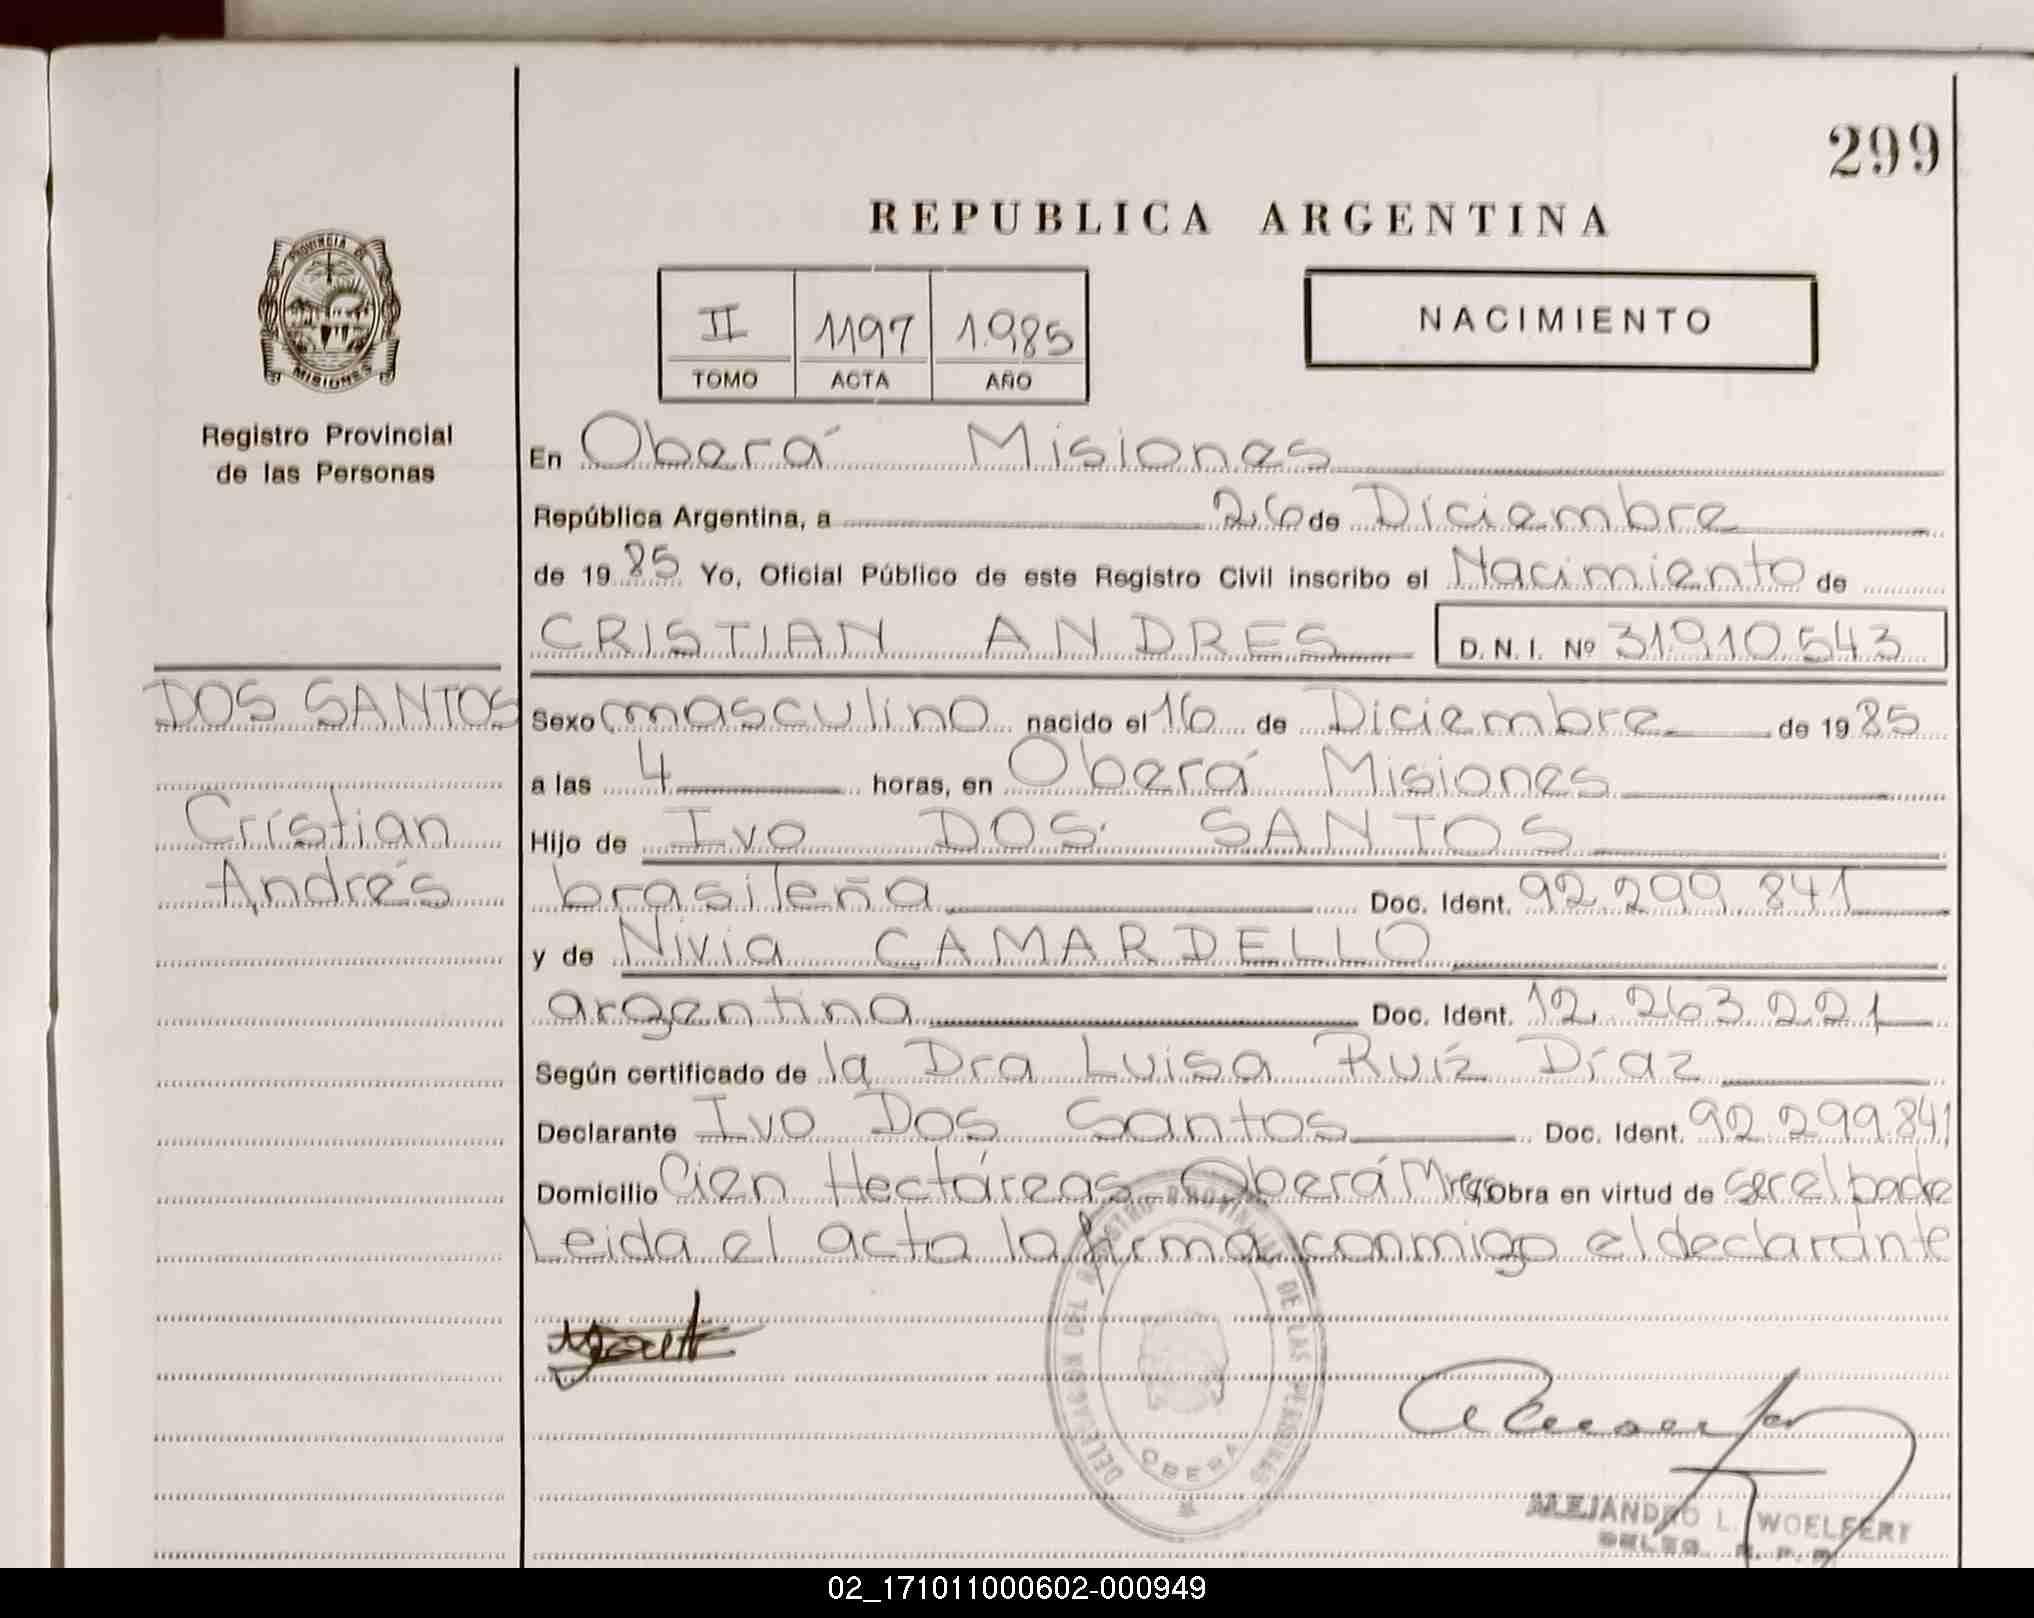 299
REPUBLICA ARGENTINA
PROVINCIA DE
MISIONES
II 1197 1.985
TOMO ACTA AÑO
NACIMIENTO
Registro Provincial
de las Personas
En Oberá Misiones
República Argentina, a 26 de Diciembre
de 1985 Yo, Oficial Público de este Registro Civil inscribo el Nacimiento de
CRISTIAN ANDRES D.N.I. Nº 31.910.543
DOS SANTOS
Cristian
Andrés
Sexo masculino nacido el 16 de Diciembre de 1985
a las 4 horas, en Oberá Misiones
Hijo de Ivo DOS SANTOS
brasileña Doc. Ident. 92.299.841
y de Nivia CAMARDELLO
argentina Doc. Ident. 12.263.221
Según certificado de la Dra Luisa Ruíz Díaz
Declarante Ivo Dos Santos Doc. Ident. 92.299.841
Domicilio Cien Hectáreas Oberá Mnes Obra en virtud de ser el padre
Leida el acta la firma conmigo el declarante
DELEGACION DEL REGISTRO PROVINCIAL DE LAS PERSONAS
OBERA
ALEJANDRO L. WOELFERT
DELEG. R. P. P.
02_171011000602-000949